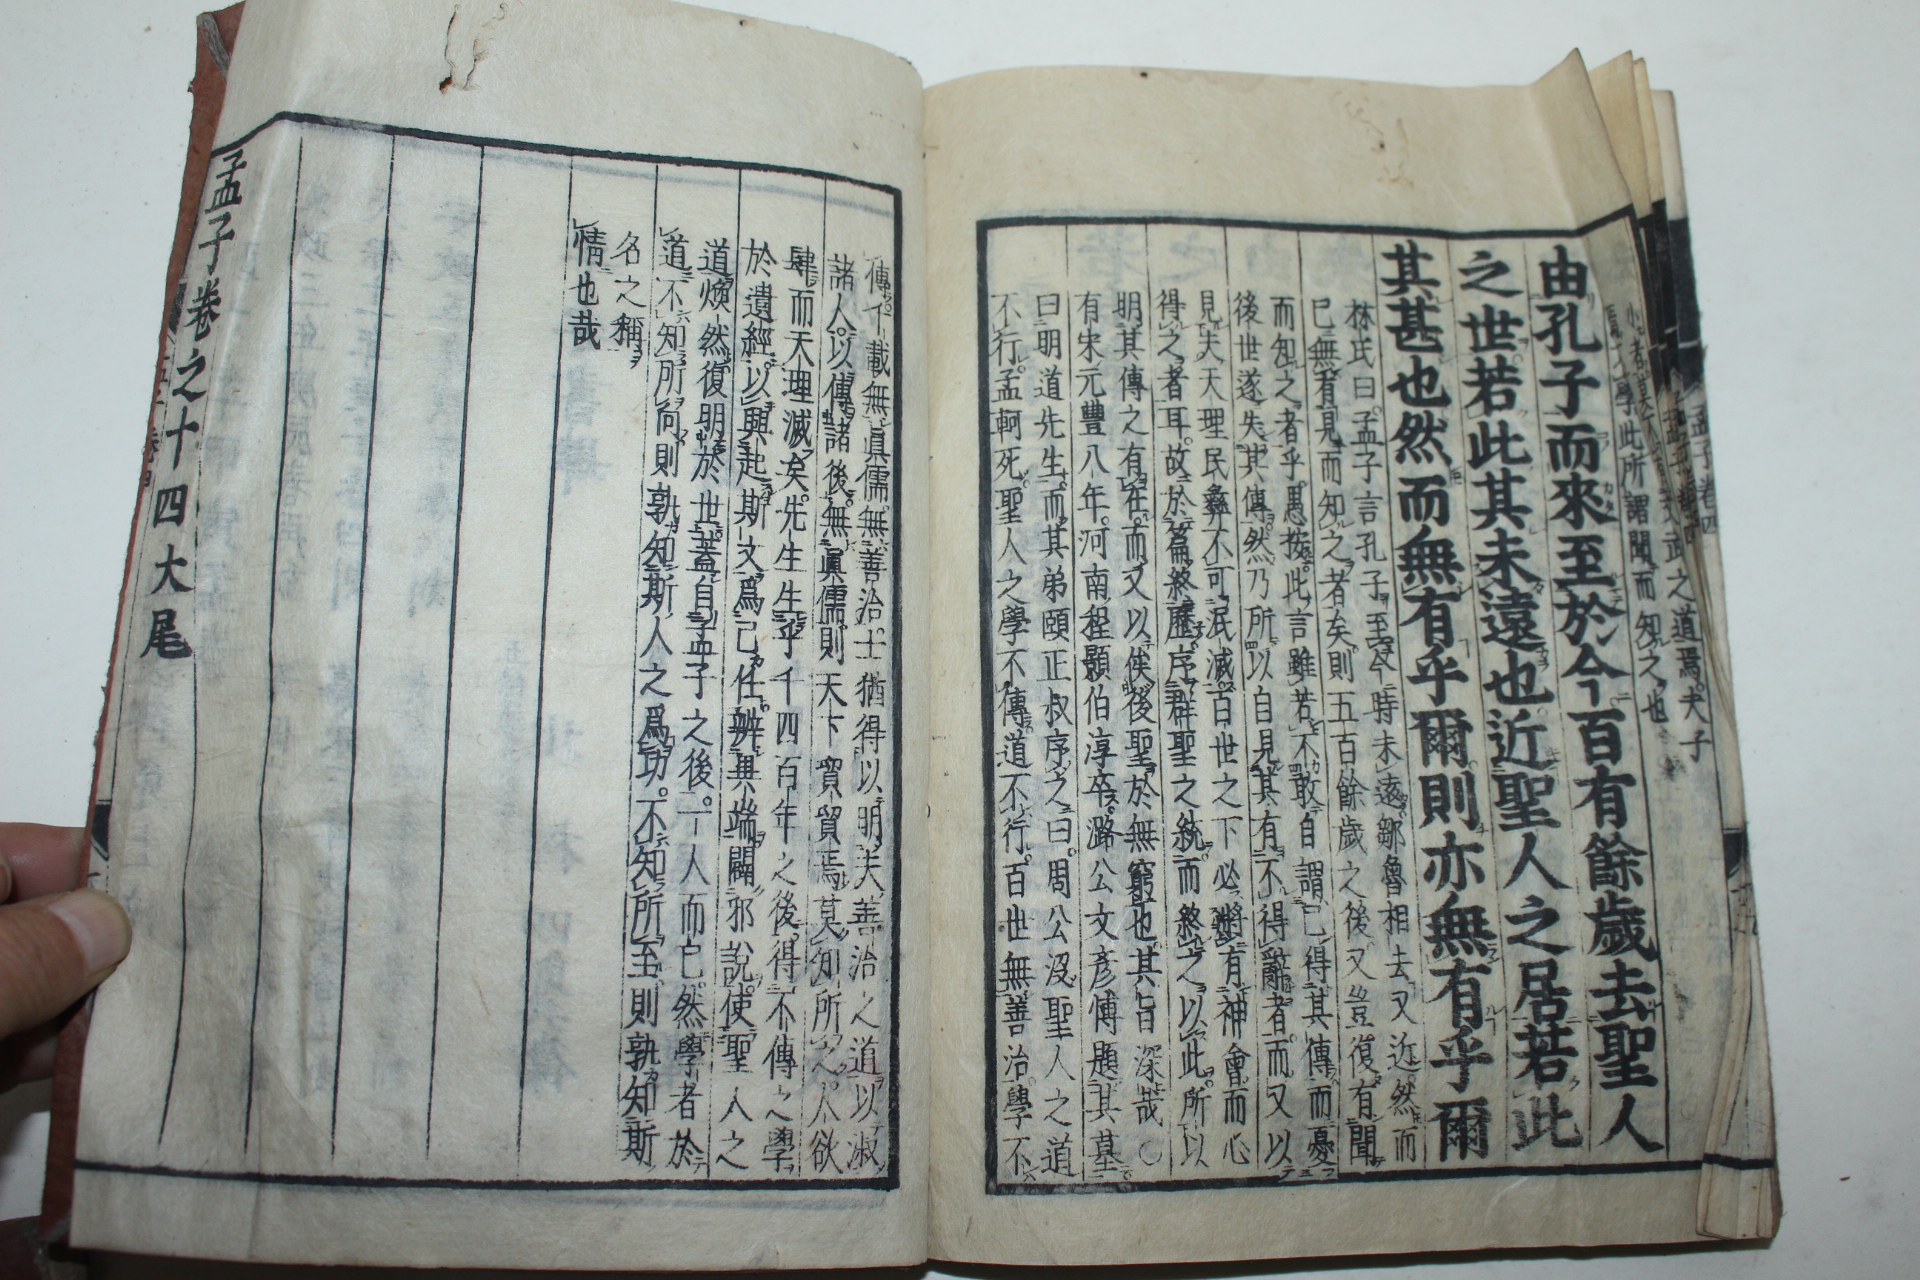 小者其
此所謂聞而知之也
由孔子而來至於今百有餘歲去聖人
之世若此其未遠也近聖人之居若此
其甚也然而無有乎爾則亦無有乎爾
林氏曰孟子言孔子至今時未遠鄒魯相去又近然而
已無有見而知之者矣則五百餘歲之後又豈復有聞
而知之者乎愚按此言雖若不敢自謂已得其傳而憂
後世遂失其傳然乃所以自見其有不得辭者而又以
見夫天理民彝不可泯滅百世之下必將有神會而心
得之者耳故於篇終歷序群聖之統而終之以此所以
明其傳之有在而又以俟後聖於無窮也其旨深哉○
有宋元豐八年河南程顥伯淳卒潞公文彥博題其墓
曰明道先生而其弟頤正叔序之曰周公沒聖人之道
不行孟軻死聖人之學不傳道不行百世無善治學不
傳千載無眞儒無善治士猶得以明夫善治之道以淑
諸人以傳諸後無眞儒則天下貿貿焉莫知所之人欲
肆而天理滅矣先生生乎千四百年之後得不傳之學
於遺經以興起斯文爲己任辨異端闢邪說使聖人之
道煥然復明於世蓋自孟子之後一人而已然學者於
道不知所向則孰知斯人之爲功不知所至則孰知斯
名之稱
情也哉
孟子卷之十四大尾